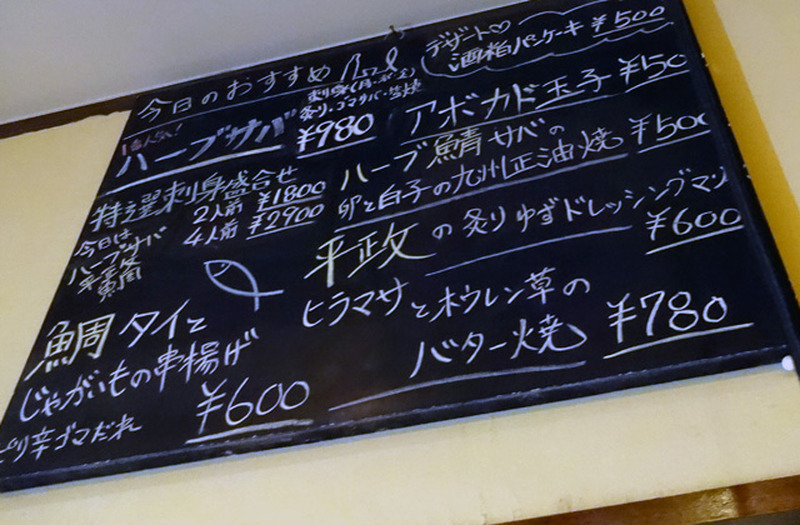 今日のおすすめ
デザート♡
酒粕パンケーキ ¥500
1番人気!
ハーブサバ ¥980
炙り・ゴマサバ・塩焼
アボカド玉子 ¥50
特選刺身盛合せ
2人前 ¥1800
4人前 ¥2900
今日は
ハーブサバ
平政
真鯛
ハーブ鯖サバの
卵と白子の九州正油焼 ¥500
平政の炙りゆずドレッシングマリ
¥600
ヒラマサとホウレン草の
バター焼 ¥780
鯛タイと
じゃがいもの串揚げ
ピリ辛ゴマだれ ¥600